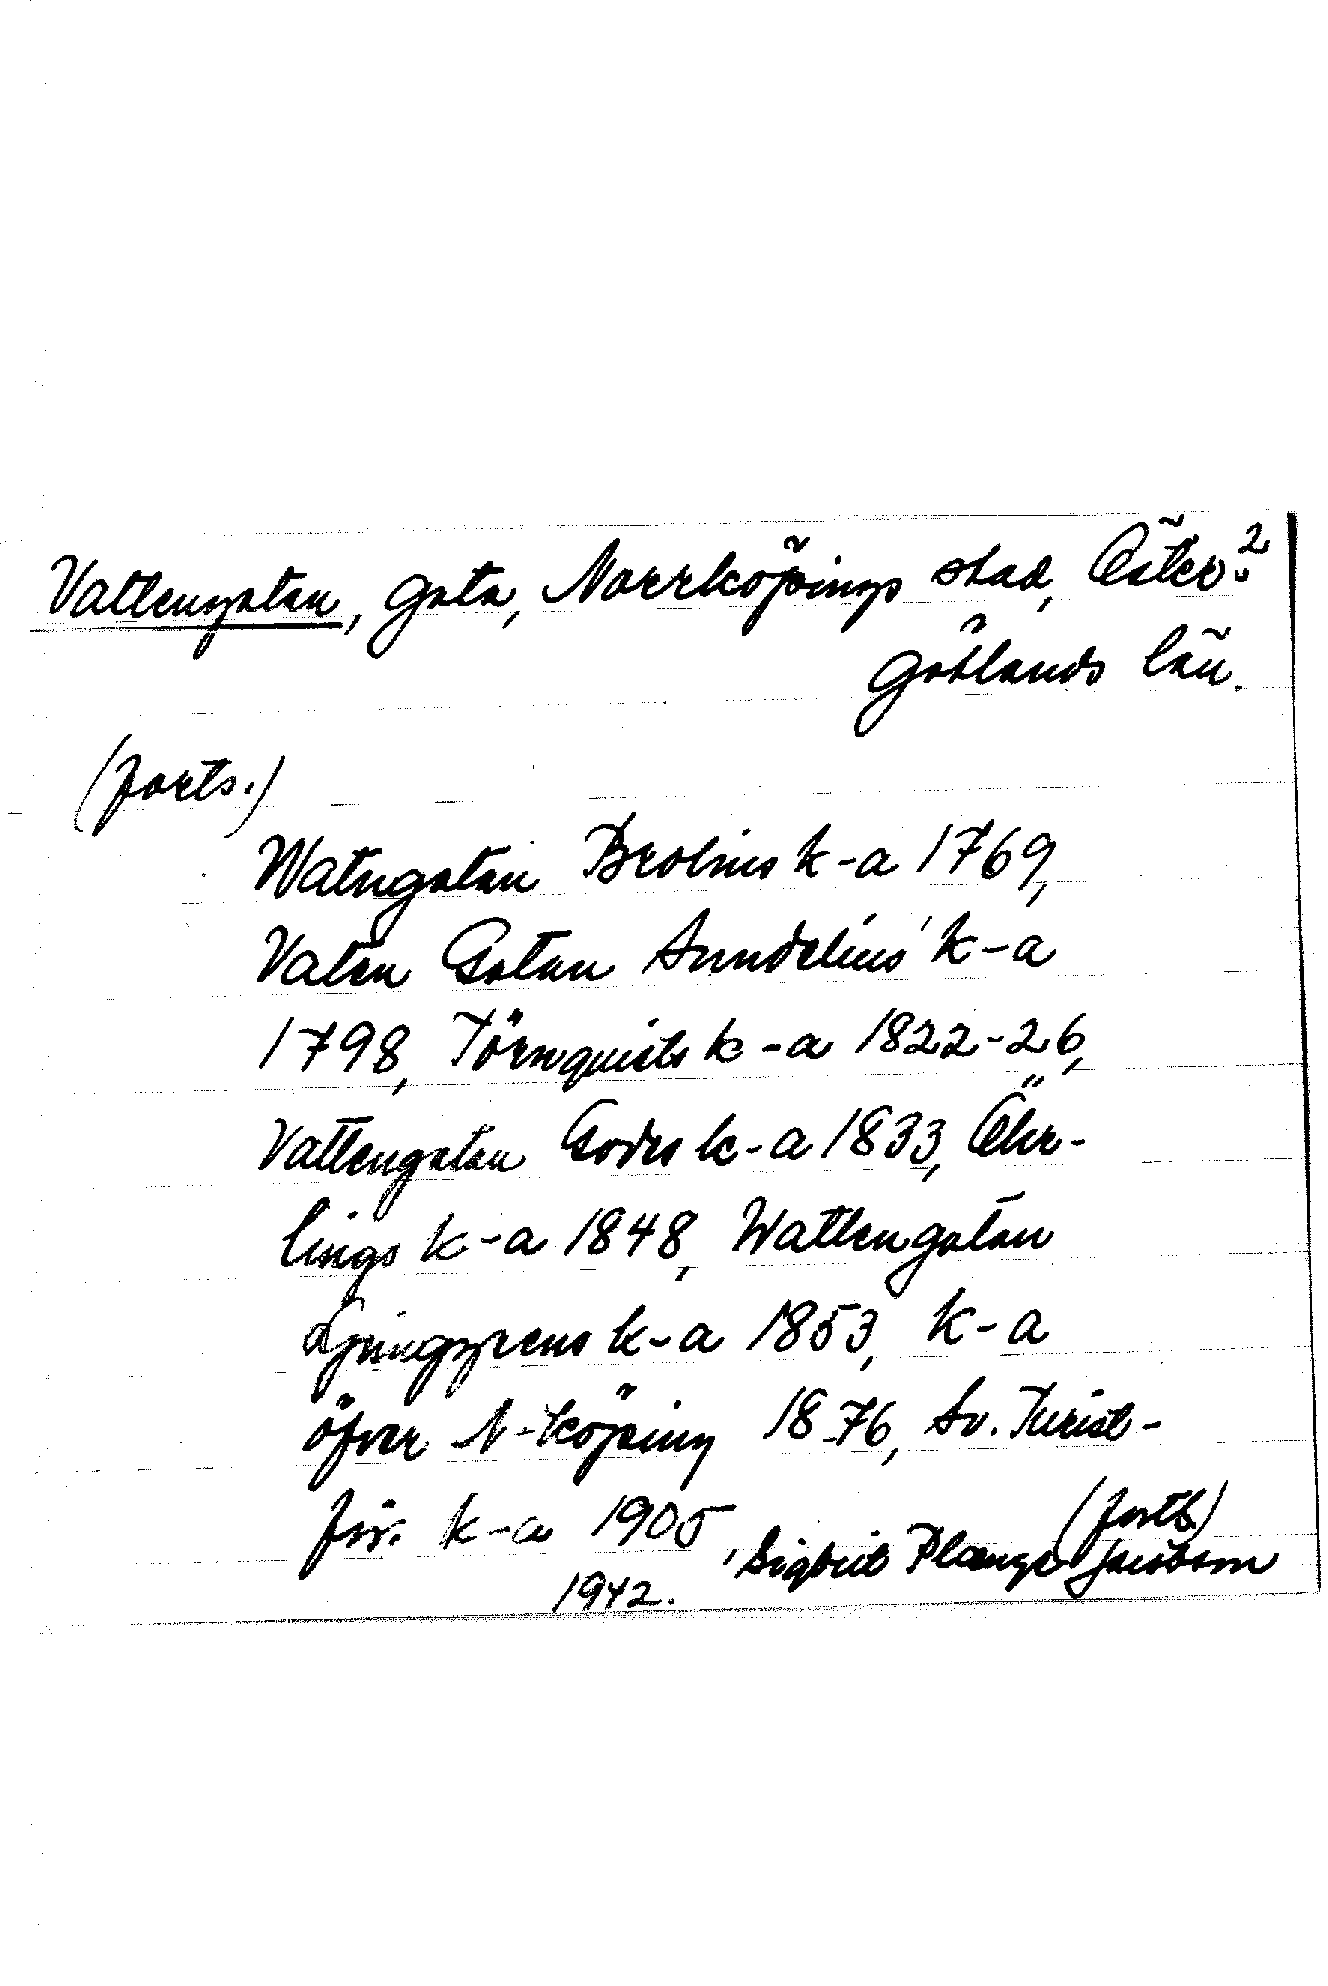 Vattengatan, gata, Norrköpings stad, Öster- 2
götlands län.
(forts.)
Watngatan Brolins k-a 1769,
Vaten Gatan Sundelius' k-a
1798, Törnquists k-a 1822-26,
Vattengatan Godes k-a 1833, Öhr-
lings k-a 1848, Wattengatan
Ljunggrens k-a 1853, k-a
öfver N-köping 1876, Sv. Turist-
för. k-a 1905, (forts)
1942. Sigbrit Plænge Jacobson